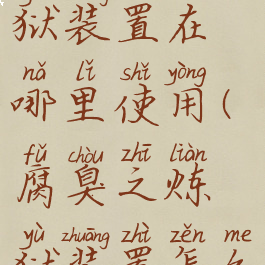 狱装置在
nǎ lǐ shǐ yòng
哪里使用(
fǔ chòu zhī liàn
腐臭之炼
yù zhuāng zhì zěn me
狱装置怎么